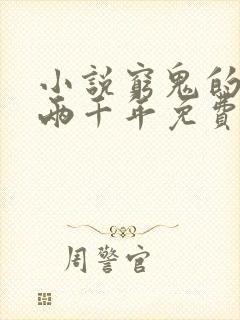 小說窮鬼的
兩千年免費
周警官